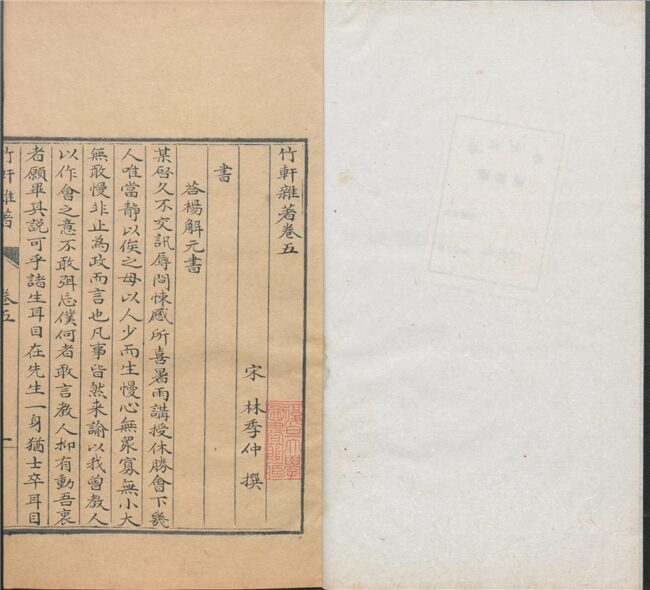 竹軒雜著卷五
宋 林季仲 撰
書
答楊解元書
某啓久不交訊辱問悚感所喜暑雨講授休勝會下幾
人唯當靜以俟之毋以人少而生慢心無衆寡無小大
無敢慢非止為政而言也凡事皆然来諭以我曾教人
以作會之意不敢弭忘僕何者敢言教人抑有動吾衷
者願畢其說可乎諸生耳目在先生一身猶士卒耳目
竹軒雜著 卷五 一